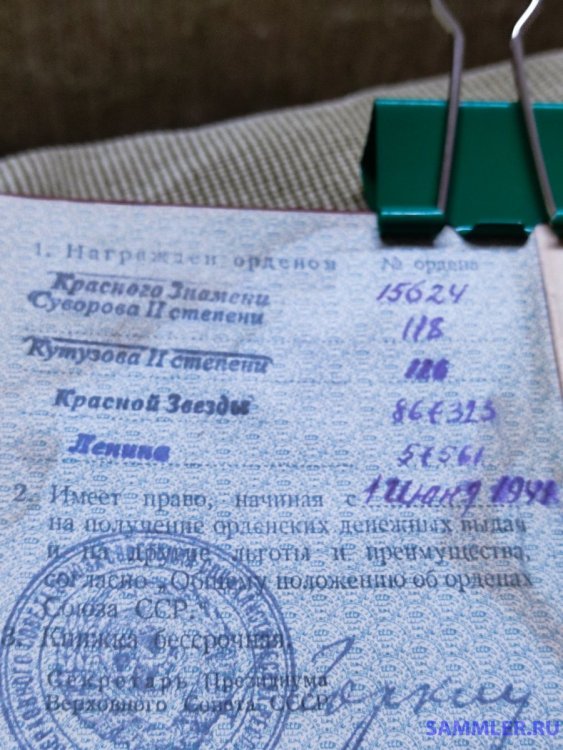 1. Награжден орденом № ордена
Красного Знамени 15624
Суворова II степени 118
Кутузова II степени
Красной Звезды 867323
Ленина 57561
2. Имеет право, начиная с 1
на получение орденских денежных выдач
и на другие льготы и преимущества,
согласно „Общему положению об орденах
Союза ССР.“
3. Книжка бессрочная.
Секретарь Президиума
Верховного Совета СССР
SAMMLER.RU